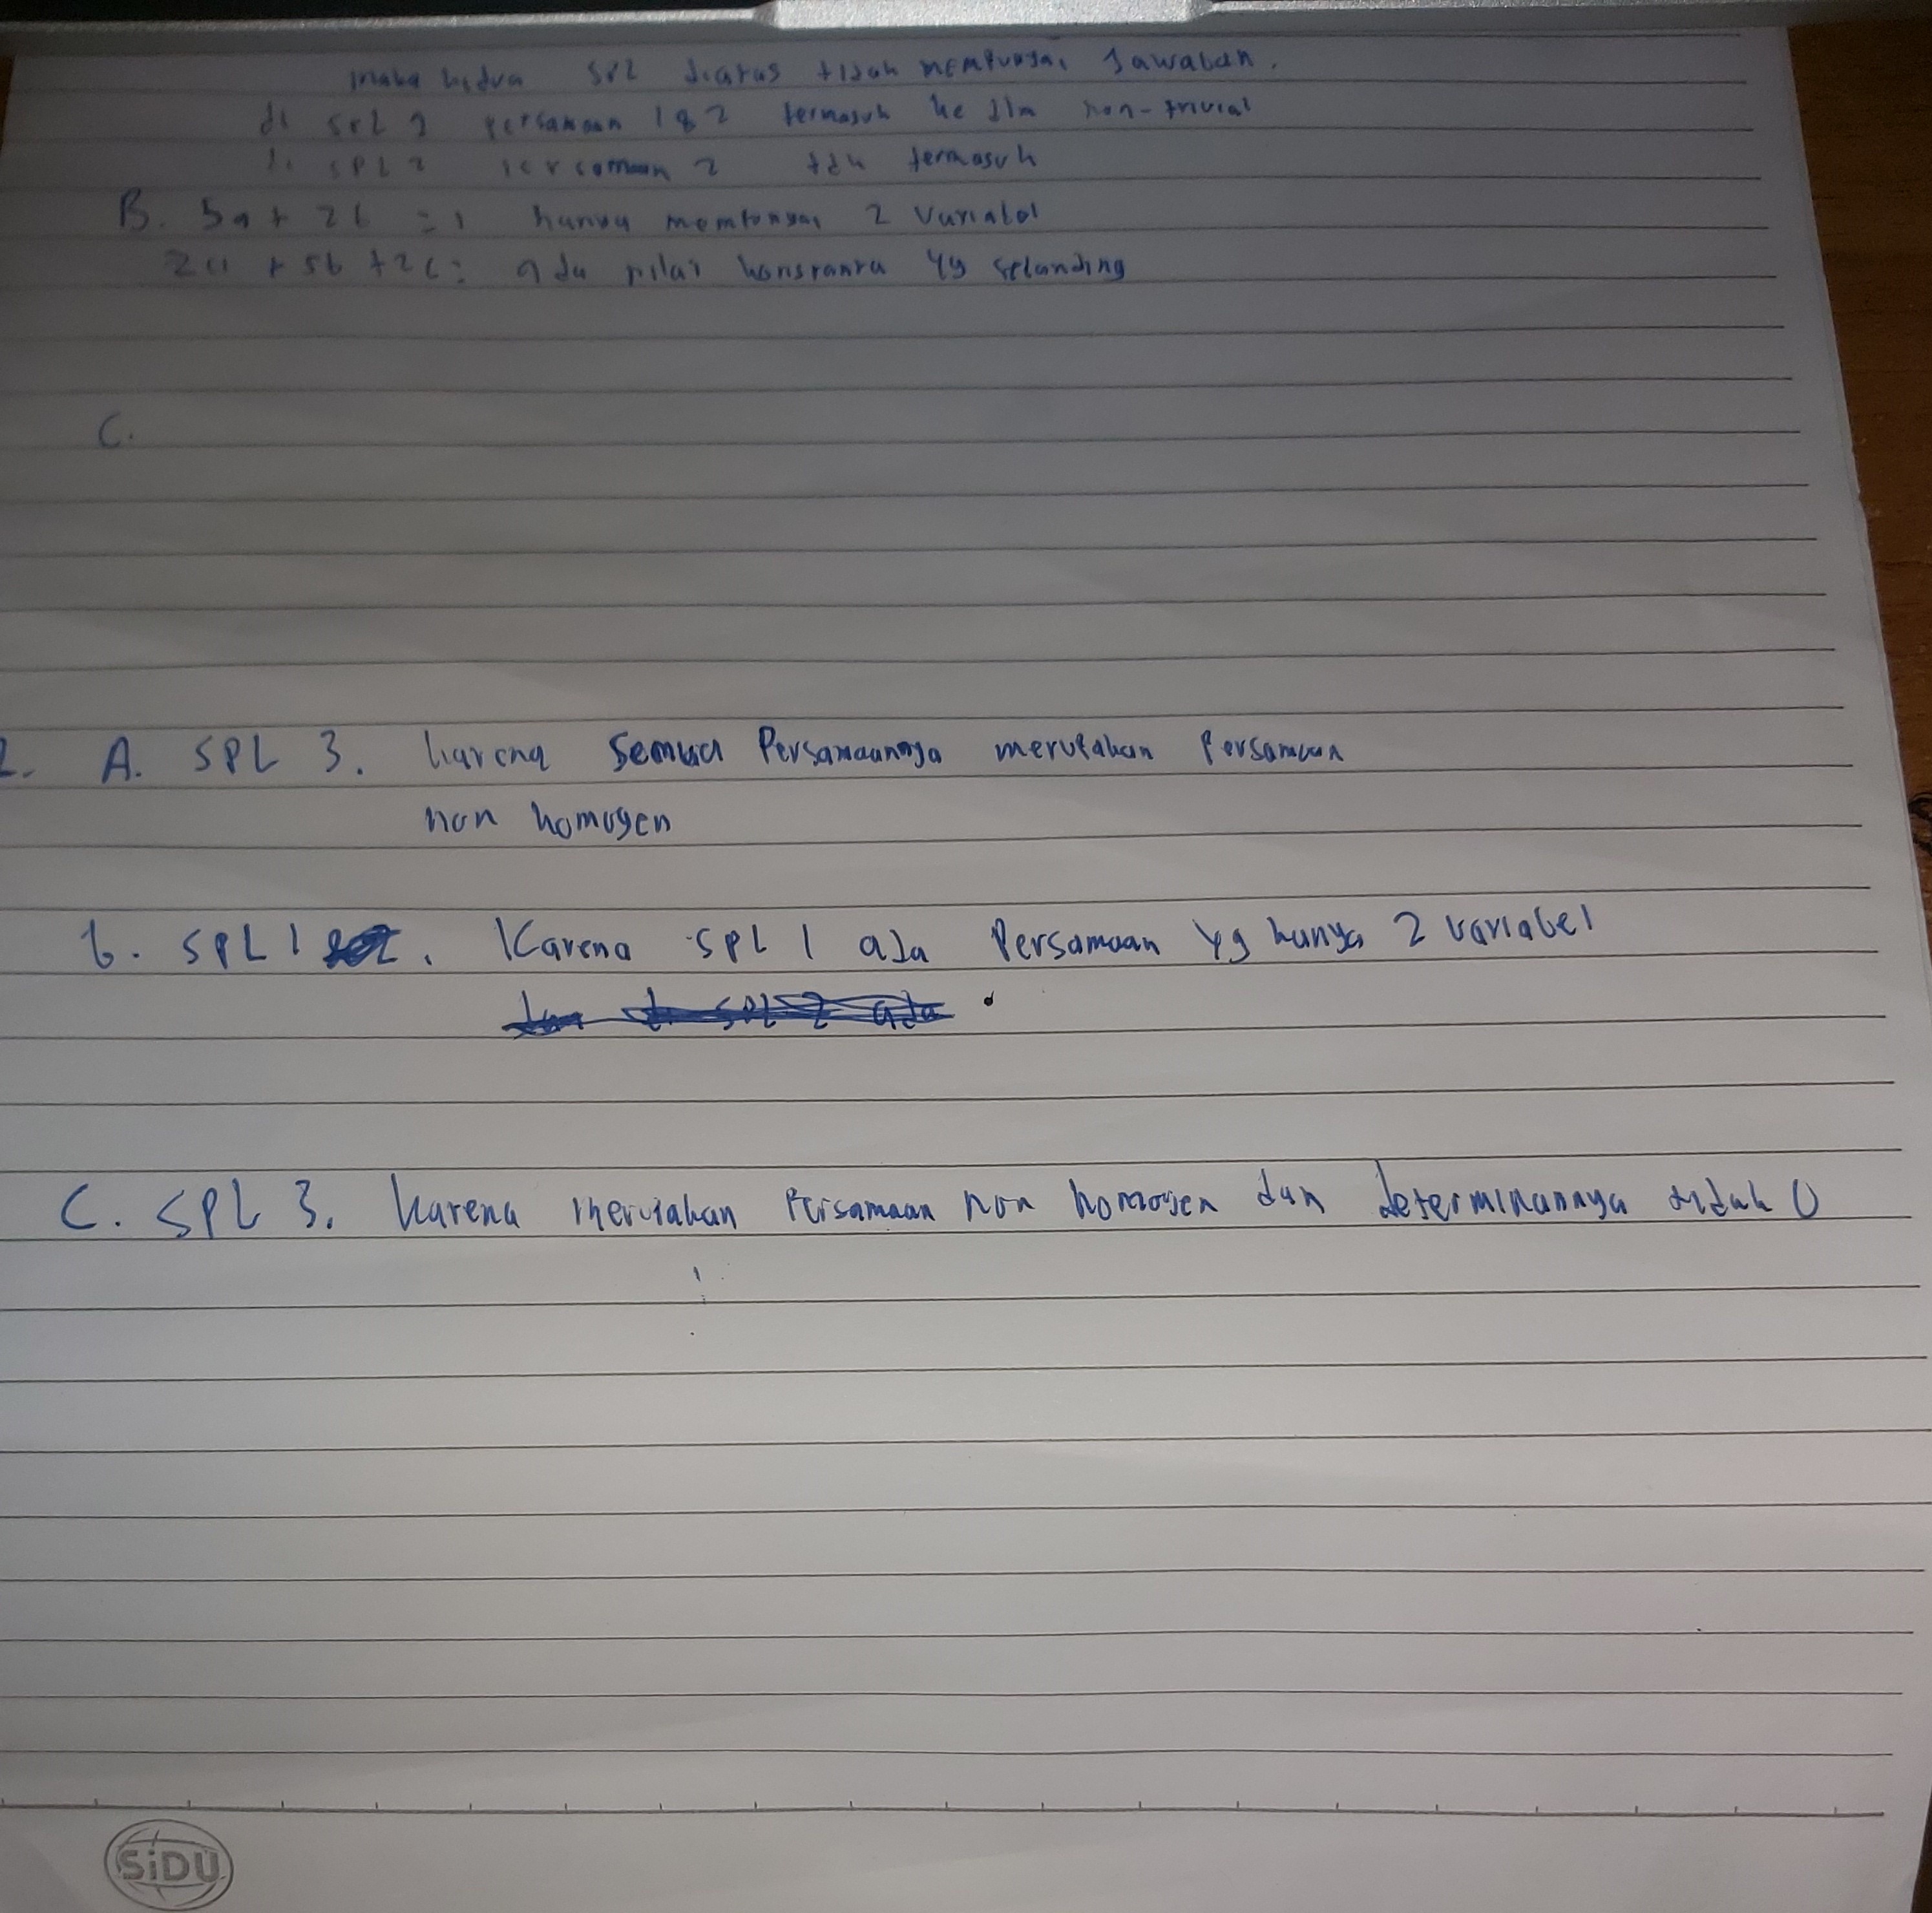 maka kedua SPL diatas tidak mempunyai Jawaban.
di SPL 2 persamaan 1 & 2 termasuk ke dlm non-trivial
di SPL 2 persamaan 2 tdk termasuk
B. 5a + 2b = 1 hanya mempunyai 2 variabel
2a + 5b + 2c = ada nilai konstanta yg sebanding
C.
2. A. SPL 3. karena Semua Persamaannya merupakan Persamaan
non homogen
b. SPL 1 . Karena SPL 1 ada Persamaan yg hanya 2 variabel
dan di SPL 2 ada
C. SPL 3. karena merupakan Persamaan non homogen dan determinannya tidak 0
SiDU